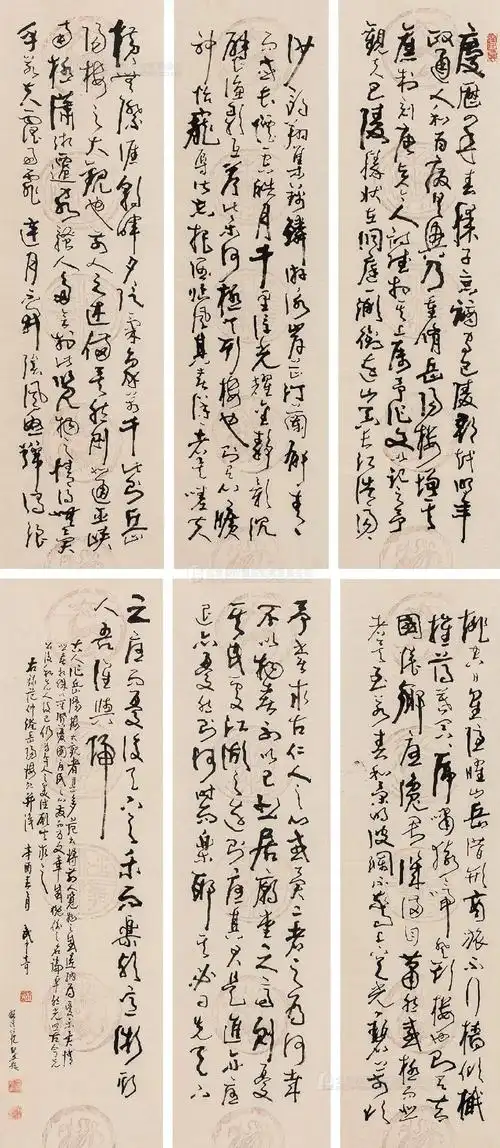 慶曆四年春滕子京謫守巴陵郡越明年
政通人和百廢具興乃重修岳陽樓增其
舊制刻唐賢今人詩賦於其上屬予作文以記之予
觀夫巴陵勝狀在洞庭一湖銜遠山吞長江浩浩湯湯
橫無際涯朝暉夕陰氣象萬千此則岳
陽樓之大觀也前人之述備矣然則北通巫峽
南極瀟湘遷客騷人多會於此覽物之情得無異
乎若夫霪雨霏霏連月不開陰風怒號濁浪
排空日星隱曜山岳潛形商旅不行檣傾楫
摧薄暮冥冥虎嘯猿啼登斯樓也則有去
國懷鄉憂讒畏譏滿目蕭然感極而悲
者矣至若春和景明波瀾不驚上下天光一碧萬頃
沙鷗翔集錦鱗游泳岸芷汀蘭郁郁青青
而或長煙一空皓月千里浮光耀金靜影沉
璧漁歌互答此樂何極登斯樓也則有心曠
神怡寵辱皆忘把酒臨風其喜洋洋者矣嗟夫
予嘗求古仁人之心或異二者之為何哉
不以物喜不以己悲居廟堂之高則憂
其民處江湖之遠則憂其君是進亦憂
退亦憂然則何時而樂耶其必曰先天下
之憂而憂後天下之樂而樂歟噫微斯
人吾誰與歸
范仲淹岳陽樓記 辛酉 月 武中奇